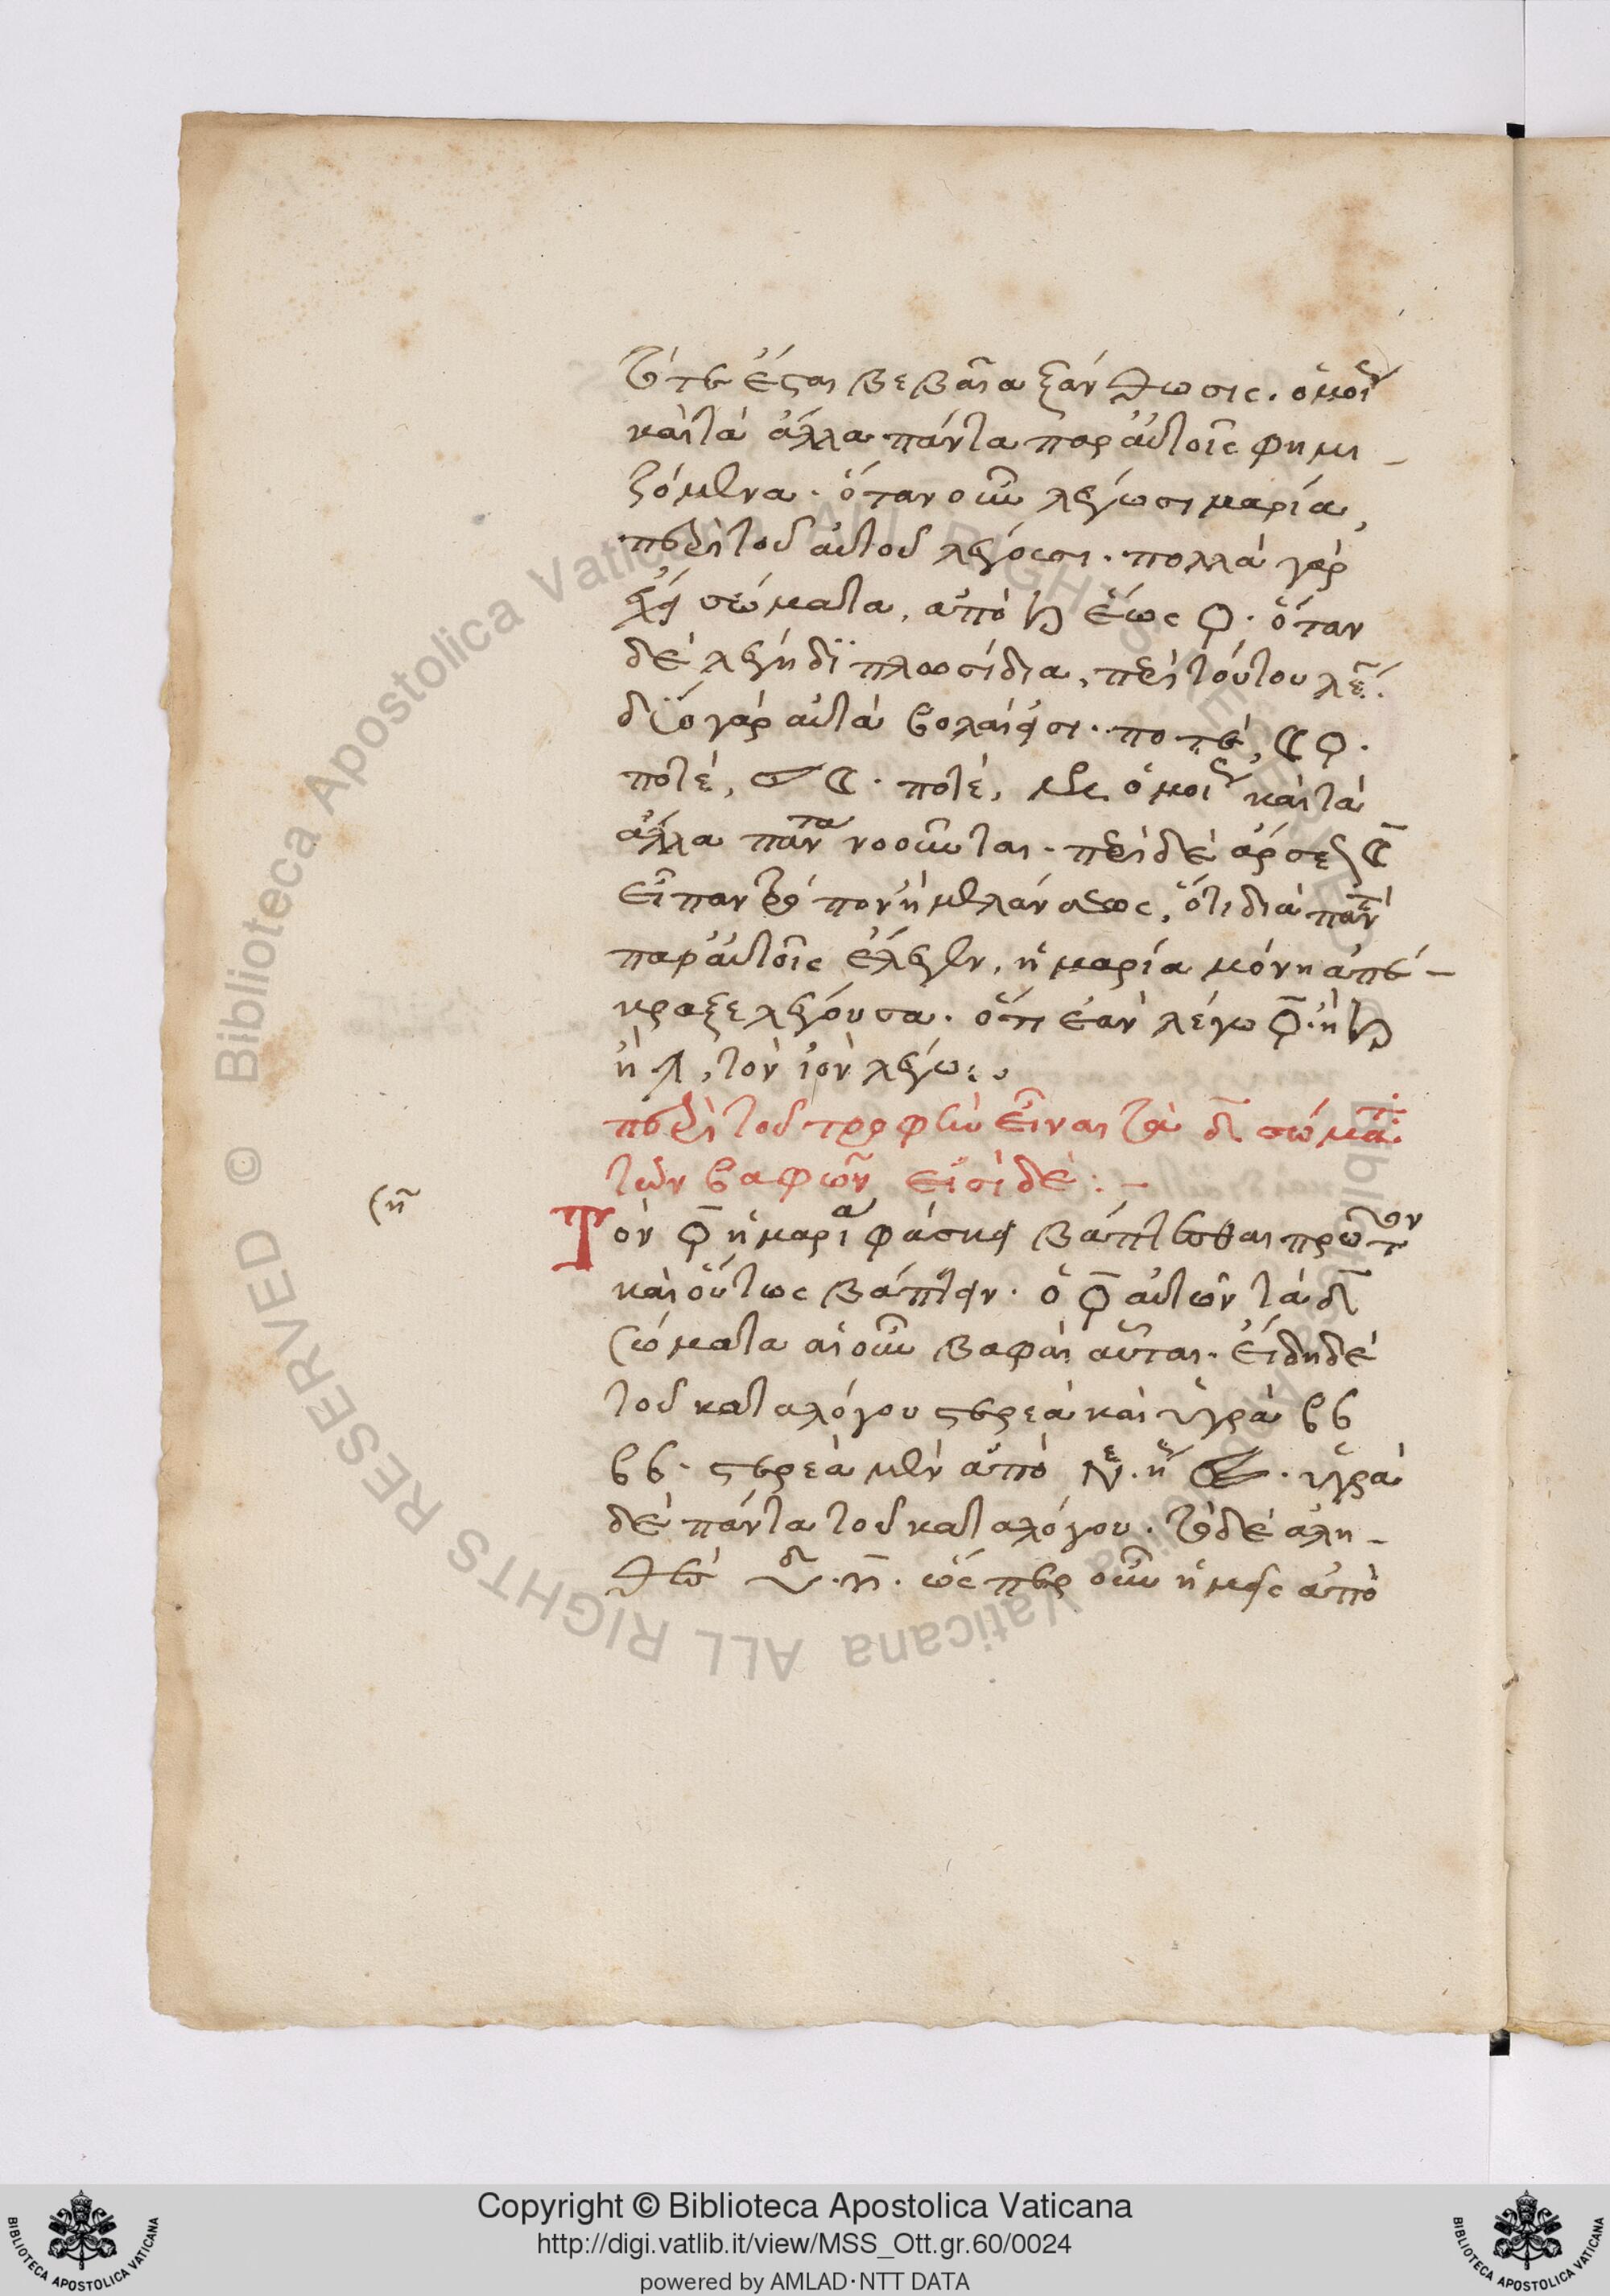 τότε ἔσται βεβαῖα ξάνθωσις. ὁμοί
καὶ τὰ ἄλλα πάντα παρ αὐτοῖς φημι
ζόμενα. ὅταν οὖν λέγωσι μαρία,
περὶ τοῦ αὐτοῦ λέγουσι. πολλὰ γὰρ
ἔχει σώματα, ἀπὸ ♄ ἕως ♀. ὅταν
δὲ λέγη διπλωσίδια, περὶ τούτου λέ.
δύο γὰρ αὐτὰ βολαίουσι. ποτὲ, ☾ ♀.
ποτέ, ☾. ποτέ, ὁμοί καὶ τὰ
ἄλλα πάντα νοοῦνται. περὶ δὲ ἀρσε ☾
εἶπαν τὸ πονήμελάνσεως, ὅτι διὰ παν
παρ αὐτοῖς ἔλεγεν, ἡ μαρία μόνη ἀπέ
κραξε λέγουσα. ὅτι ἐὰν λέγω ♀. ἢ ♄
ἢ, τὸν ἰὸν λέγω:
περὶ τοῦ τροφὴν εἶναι τὰ δ σώματ:
τῶν βαφῶν εἰσὶ δὲ:
ση
Τὸν ♀ ἡ μαρία φάσκει βάπτεσθαι πρῶτον
καὶ οὕτως βάπτειν. ὁ ♀ αὐτῶν τὰ δ
σώματα αἱ οὖν βαφαὶ αὗται. εἴδη δὲ
τοῦ καταλόγου στερεὰ καὶ ὑγρὰ βϐ
βϐ. στερεὰ μὲν ἀπὸ. ὑγρὰ
δὲ πάντα τοῦ καταλόγου. τὸ δὲ ἀλη
θὲς. ὥσπερ οὖν ἡμεῖς ἀπὸ
Copyright © Biblioteca Apostolica Vaticana
http://digi.vatlib.it/view/MSS_Ott.gr.60/0024
powered by AMLAD·NTT DATA
BIBLIOTECA APOSTOLICA VATICANA
BIBLIOTECA APOSTOLICA VATICANA
Biblioteca Apostolica Vaticana ALL RIGHTS RESERVED ©